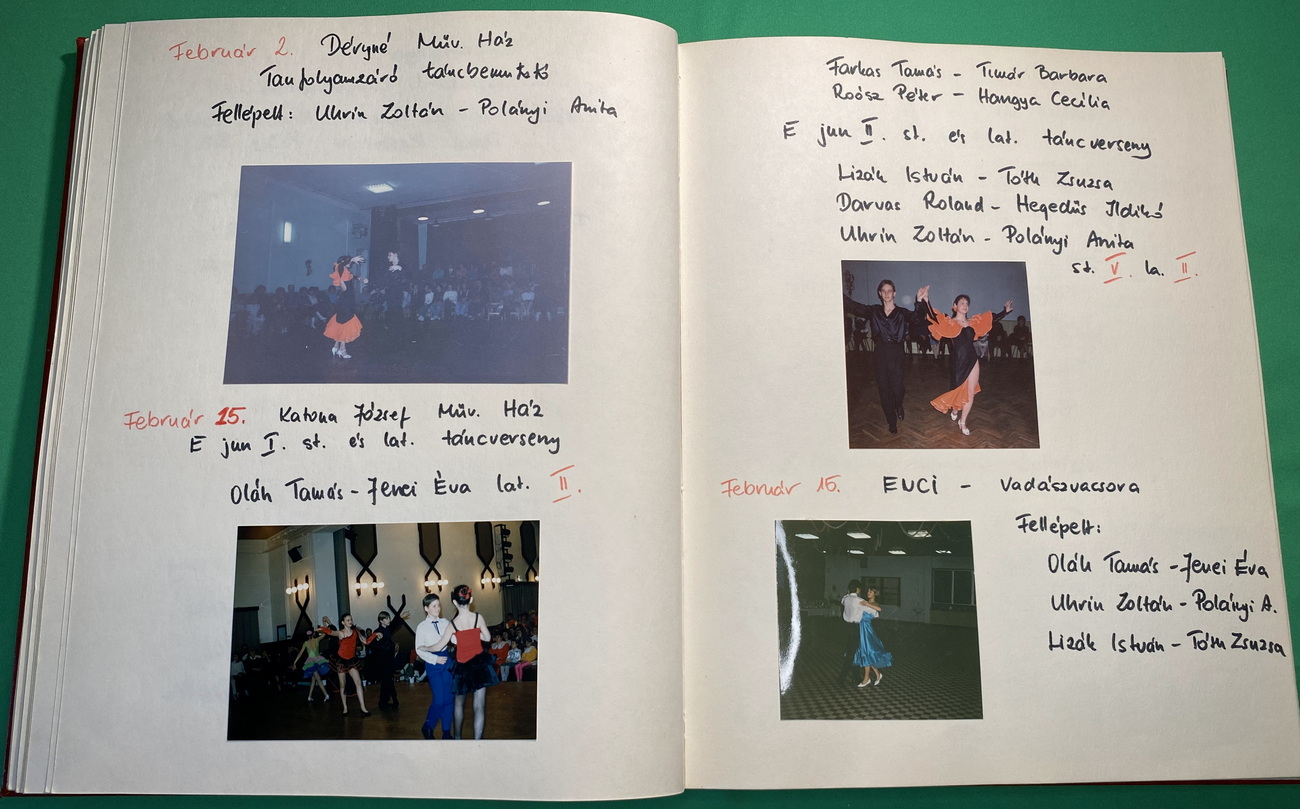 Február 2. Déryné Műv. Ház
Tanfolyamzáró táncbemutató
Fellépett: Uhrin Zoltán - Polányi Anita
Február 15. Katona József Műv. Ház
E jun I. st. és lat. táncverseny
Oláh Tamás - Jenei Éva lat. II.
Farkas Tamás - Timár Barbara
Roósz Péter - Hangya Cecília
E jun II. st. és lat. táncverseny
Lizák István - Tóth Zsuzsa
Darvas Roland - Hegedüs Ildikó
Uhrin Zoltán - Polányi Anita
st. V. la. II.
Február 15. ENCI - Vadászvacsora
Fellépett:
Oláh Tamás - Jenei Éva
Uhrin Zoltán - Polányi A.
Lizák István - Tóth Zsuzsa